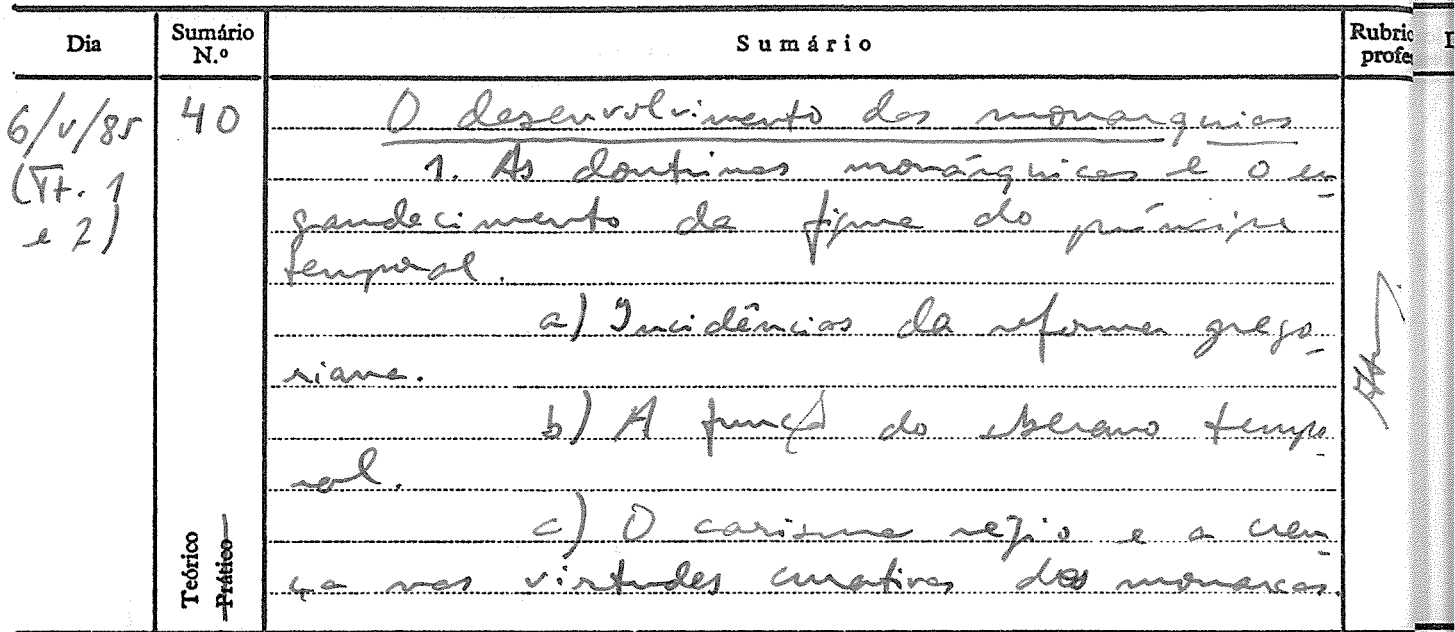 Dia
Sumário
N.º
Sumário
Rubric
profe
6/V/85
(Tt. 1
e 2)
40
O desenvolvimento das monarquias
1. As doutrinas monárquicas e o en
grandecimento da figura do príncipe
temporal.
a) Incidências da reforma grego-
riana.
b) A função do soberano tempo
ral.
c) O carisma régio e a cren
ça nas virtudes curativas dos monarcas.
Teórico
Prático